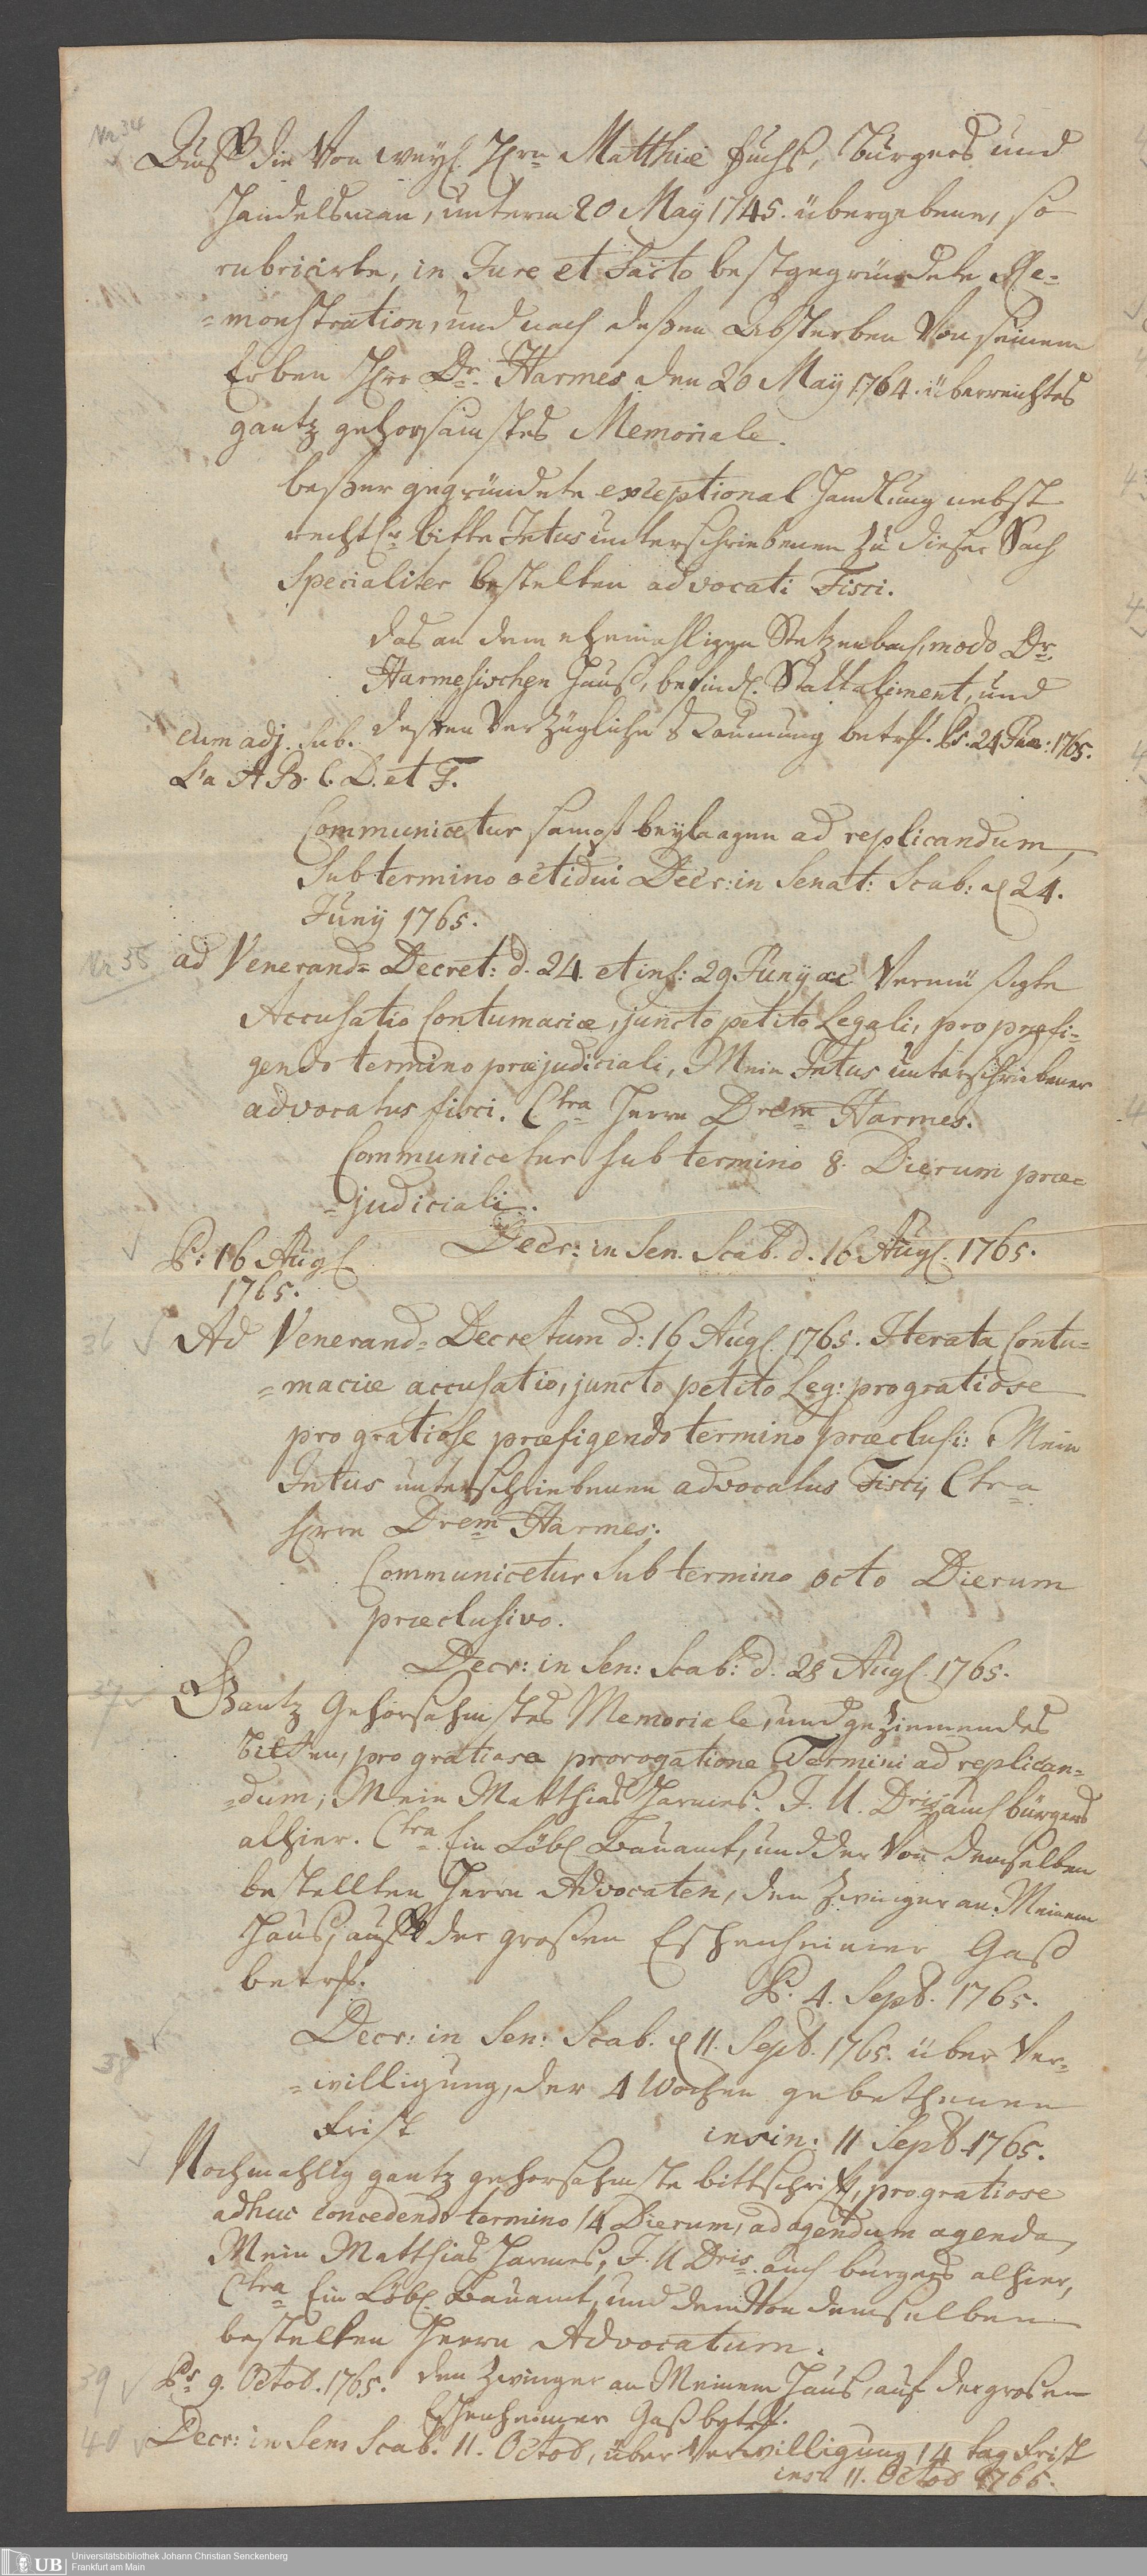 Nr 34
Auff die Von weyl. Hrn Matthiæ Fuchs, Burgers und
Handelsman, unterm 20 May 1745. übergebene, so
rubricirte, in Jure et Facto bestgegründete Re=
=monstration, und nach deßen Absterben Von seinem
Erben Hrr Dr. Harmes den 20 May 1764. überreichtes
gantz gehorsamstes Memoriale.
beßer gegründete exceptional Handlung nebst
rechtl. bitte Intus unterschriebenen zu dieser Sach
Specialiter bestelten advocati Fisci.
das an dem ehemahligen Stetzenbach, modo Dr.
Harmesischen Hauß, befindl. Stattaliment, und
deßen Verzügliche Raumung betrf. Ps. 24 Jun: 1765.
cum adj. Sub.
La A. B. C. D. et F.
Communicetur samt beylaagen ad replicandum,
Sub termino octidui Decr: in Senat: Scab: d 24.
Juny 1765.
Nr 35
ad Venerand= Decret: d. 24. et ins: 29. Juny ac. Vermüsigte
Accusatio Contumaciæ, juncto petito Legali, pro præfi=
gendo termino præjudiciali, Mein Intus unterschriebener
advocatus fisci. Ctra Herrn Drem Harmes.
Communicetur sub termino 8. Dierum præ=
=judiciali.
Decr: in Sen. Scab. d. 16 Augl. 1765.
Ps: 16 Augl.
1765.
36
Ad Venerand= Decretum d: 16 Augl. 1765. Iterata Contu=
=maciæ accusatio, juncto petito Leg: pro gratiose
pro gratiose præfigendo termino præclusi: Mein
Intus unterschriebenen advocatus Fisci, Ctra
Hrrn Drem Harmes.
Communicetur sub termino octo Dierum
præclusivo.
Decr: in Sen: Scab: d. 28 Augl. 1765.
37
Gantz Gehorsahmstes Memoriale, und geziemendes
Bitten, pro gratiosa prorogatione Termini ad replican=
=dum; Mein Matthias Harmes. J. U. Dris auch bürgers
alhier. Ctra Ein Löbl. Bauamt, und der Von demselben
bestellten Herrn Advocaten, den Zwinger an Meinem
Hauß, auff der großen Eschenheimer Gaß
betrf.
Ps. 4. Sept. 1765.
38
Decr: in Sen: Scab. d 11. Sept. 1765. über Ver=
=willigung, der 4 Wochen gebethenen
Frist
insin: 11 Sept. 1765.
Nochmahlig gantz gehorsahmste bittschrift, pro gratiose
adhuc concedendo termino 14 Dierum, ad agendum agenda,
Mein Matthias Harmes, J. U Dris. auch burgers alhier,
Ctra Ein Löbl. Bauamt, und dem Von demselben
bestelten Herrn Advocatum.
39
Ps 9. Octob. 1765. den Zwinger an Meinem Hauß, auf der grosen
Eschenheimer Gaß betrf.
40
Decr: in Sen: Scab. 11. Octob, über Verwilligung 14 tag Frist
ins. 11. Octob 1765.
UB Universitätsbibliothek Johann Christian Senckenberg
Frankfurt am Main